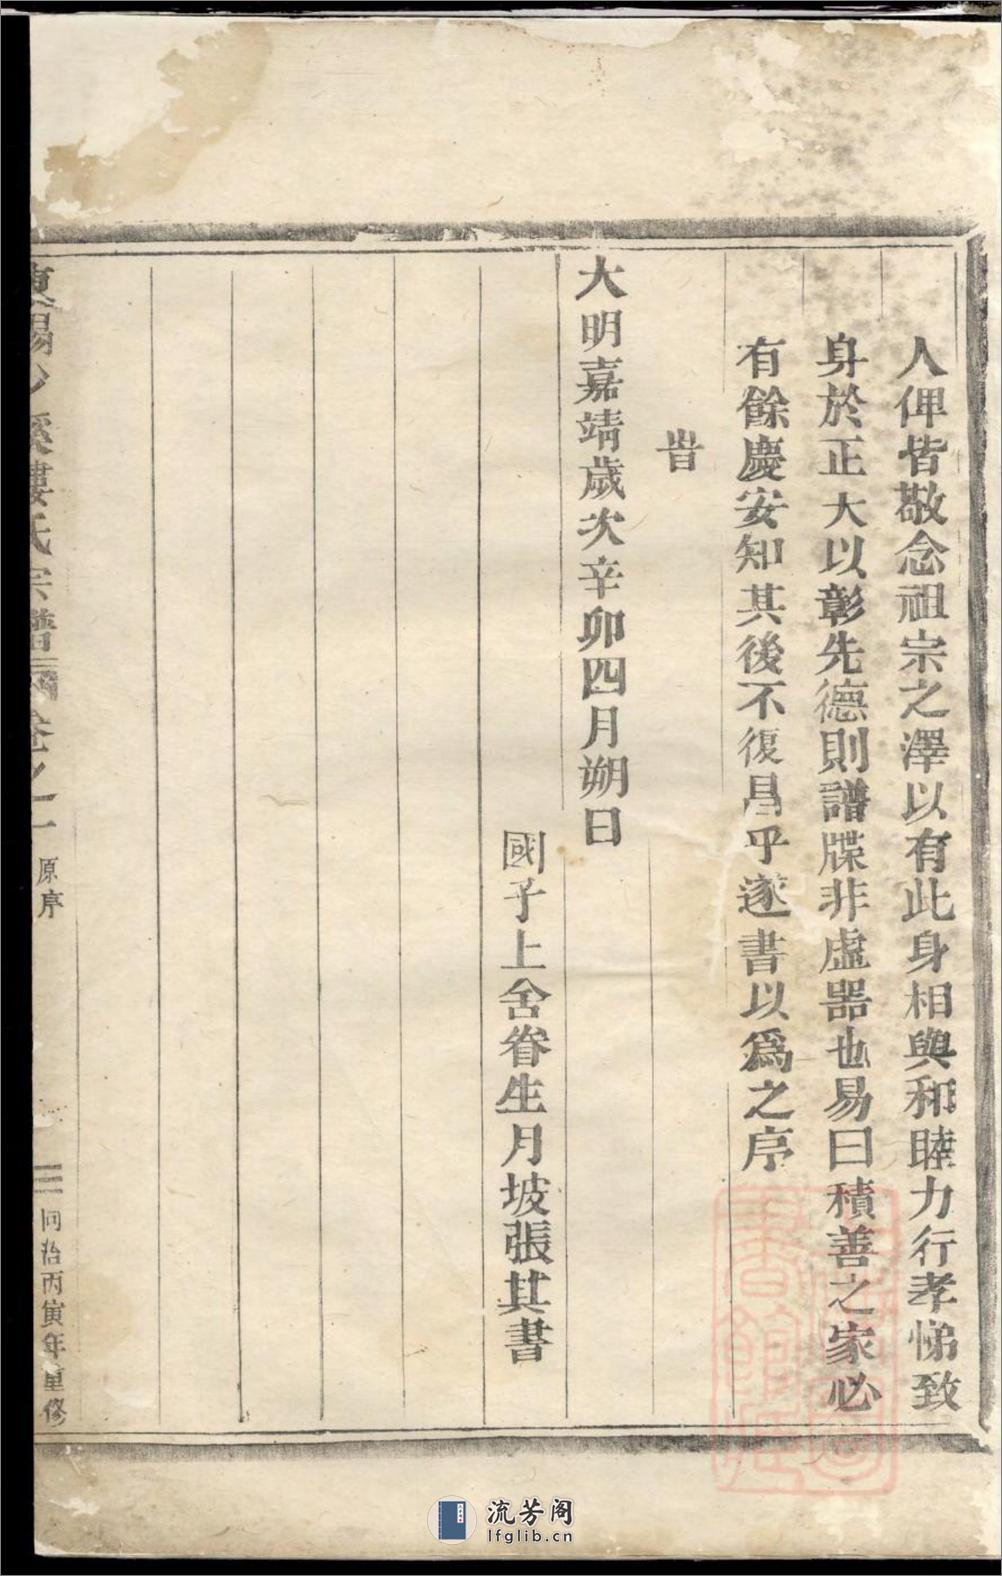 人俾皆敬念祖宗之澤以有此身相與和睦力行孝悌致
身於正大以彰先德則譜牒非虛器也易曰積善之家必
有餘慶安知其後不復昌乎遂書以爲之序
旹
大明嘉靖歲次辛卯四月朔日
國子上舍眷生月坡張其書
東陽 溪婁氏宗譜 卷之一 原序 三 同治丙寅年重修
流芳阁
lfglib.cn